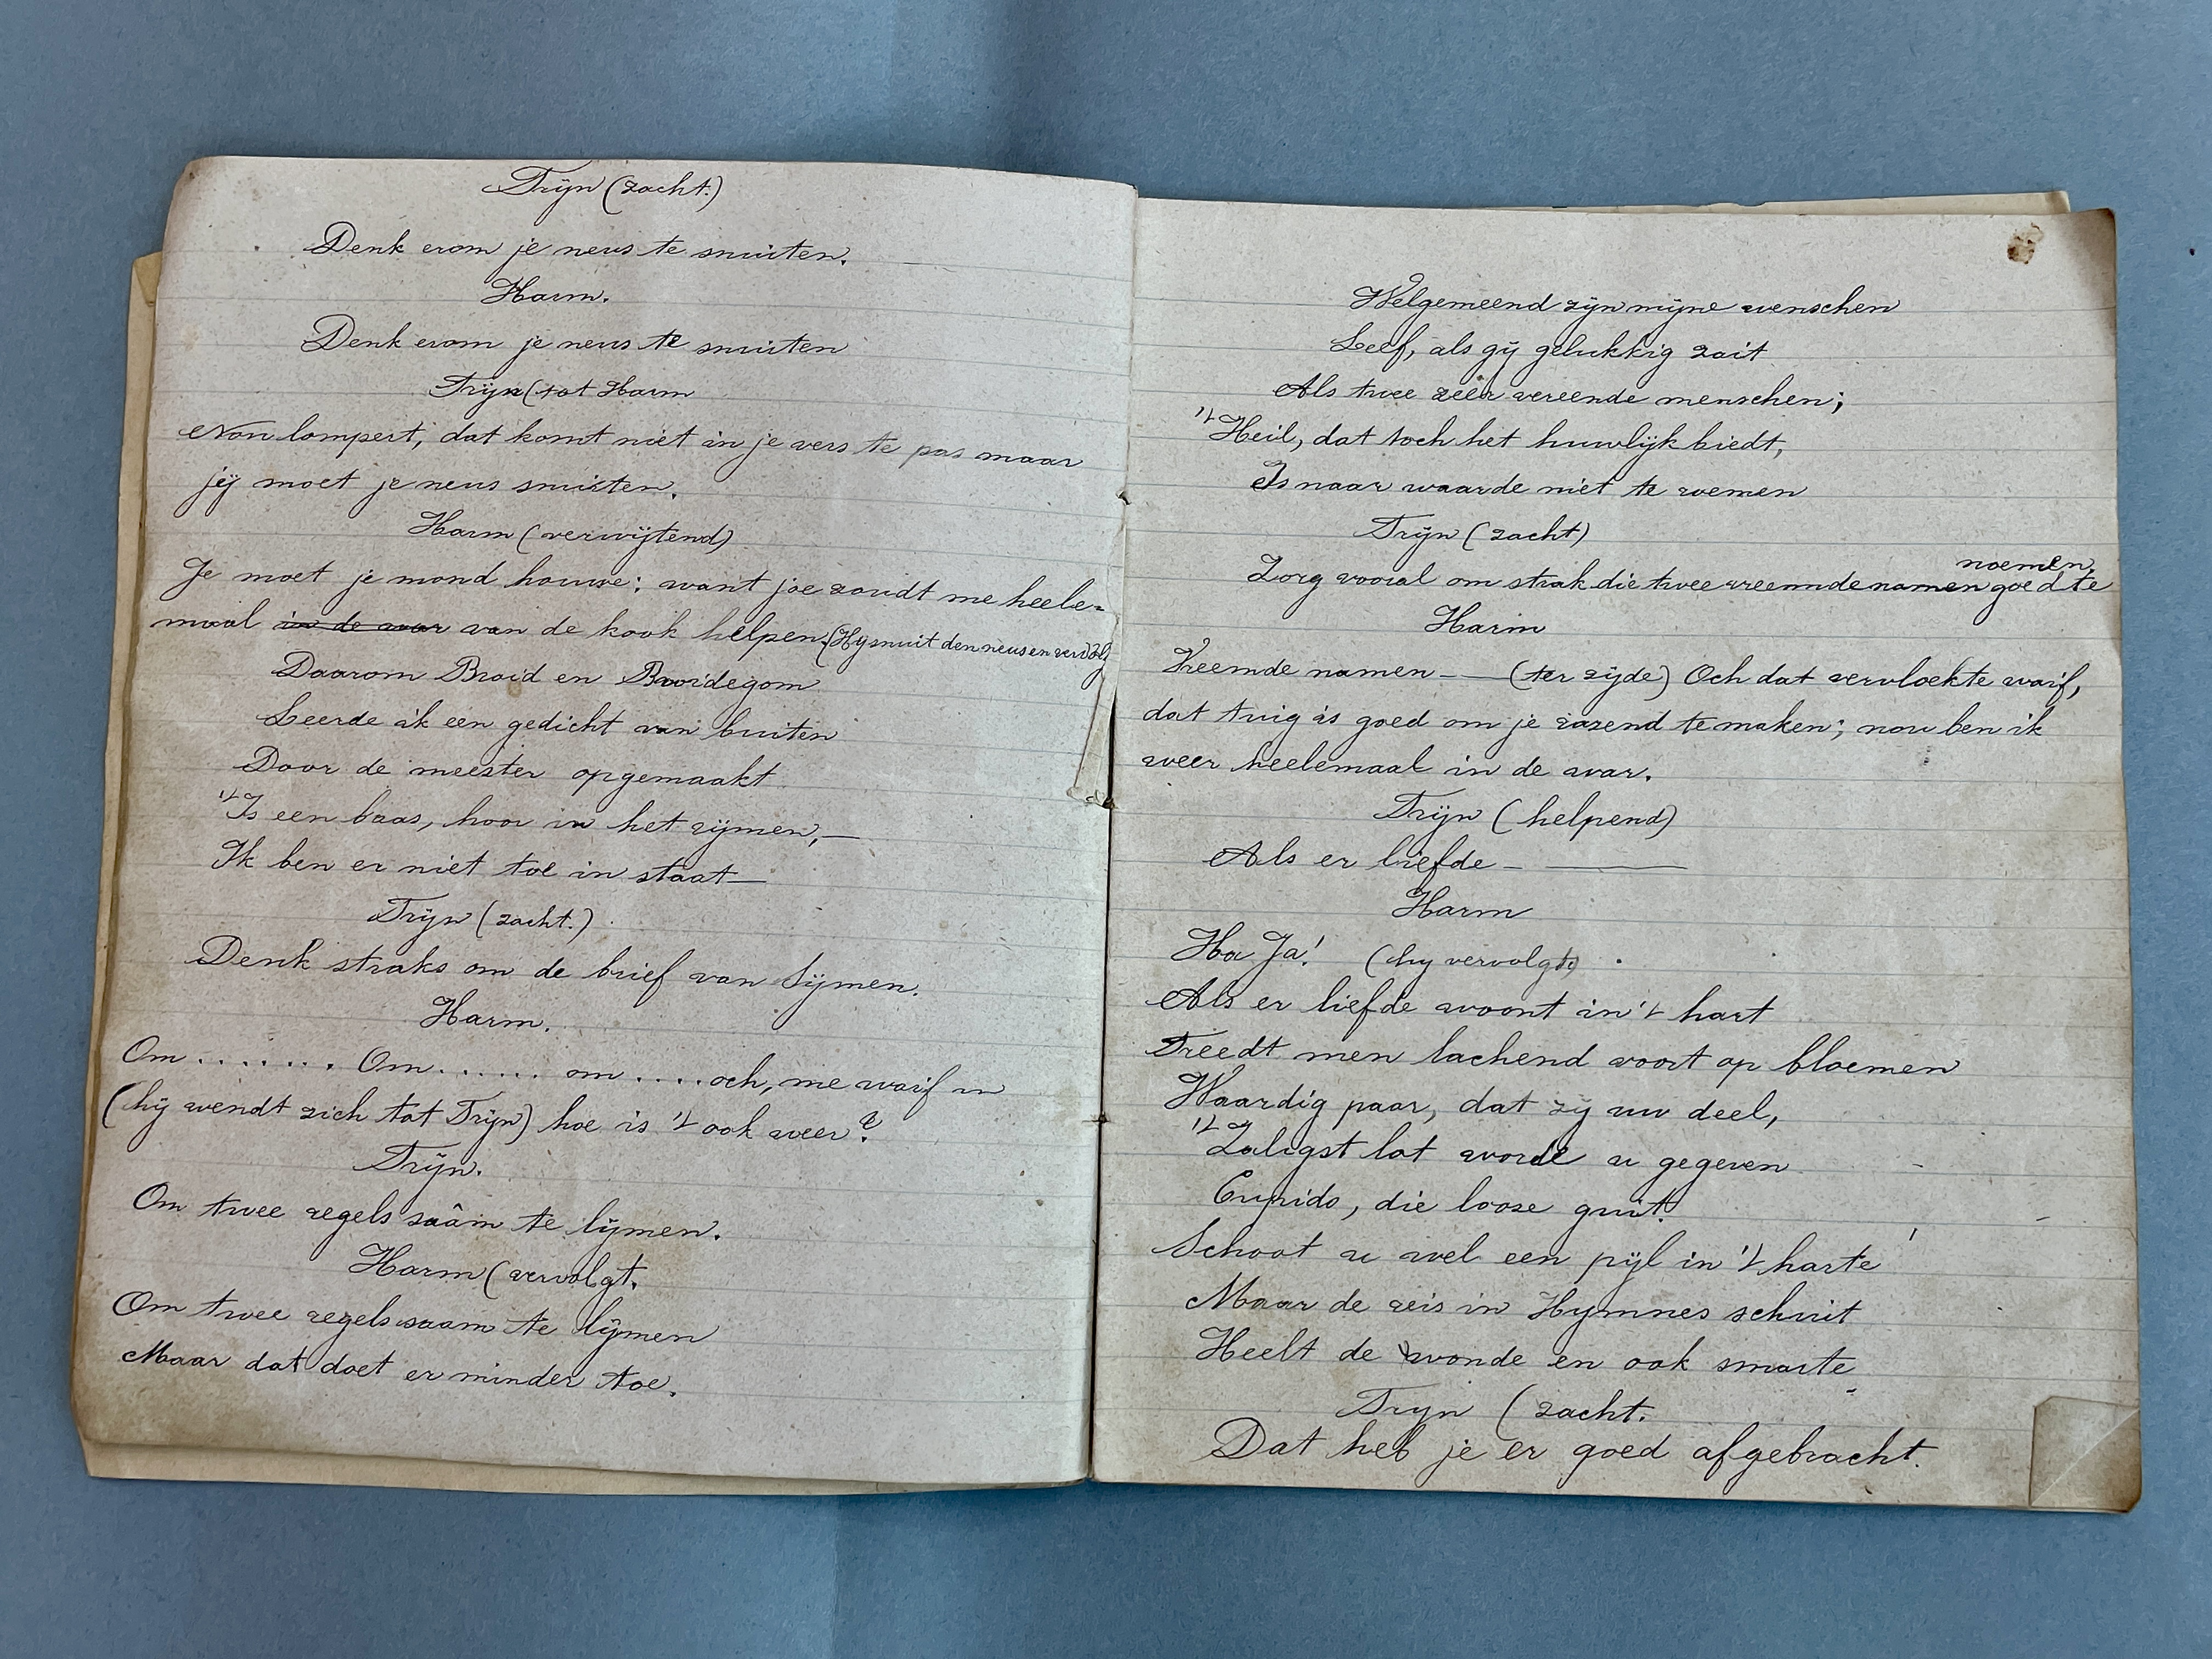 Trijn (zacht.)
Denk erom je neus te snuiten.
Harm.
Denk erom je neus te snuiten
Trijn (tot Harm
Non lompert, dat komt niet in je vers te pas maar
jij moet je neus snuiten.
Harm (verwijtend)
Je moet je mond houwe: want joe zoudt me heele=
maal in de war van de kook helpen. (Hy snuit den neus en
Daarom Broid en Broidegom
Leerde ik een gedicht van buiten
Door de meester opgemaakt
't Is een baas, hoor in het rijmen, —
Ik ben er niet toe in staat —
Trijn (zacht.)
Denk straks om de brief van Sijmen.
Harm.
Om ....... Om ...... om .... och, me waif
(hij wendt zich tot Trijn) hoe is 't ook weer?
Trijn.
Om twee regels saâm te lijmen.
Harm (vervolgt.
Om twee regels saam te lijmen
Maar dat doet er minder toe.
Welgemeend zijn mijne wenschen
Leef, als gij gelukkig zait
Als twee zeer vereende menschen;
't Heil, dat toch het huwlijk biedt,
Is naar waarde niet te roemen
Trijn (zacht)
Zorg vooral om strak die twee vreemde namen goed te
noemen.
Harm
Vreemde namen — — (ter zijde) Och dat vervloekte waif,
dat tuig is goed om je razend te maken; nou ben ik
weer heelemaal in de war.
Trijn (helpend)
Als er liefde — ———
Harm
Ha Ja! (hy vervolgt)
Als er liefde woont in 't hart
Treedt men lachend voort op bloemen
Waardig paar, dat zij uw deel,
't Zaligst lot worde u gegeven
Cupido, die looze guit.
Schoot u wel een pijl in 't harte
Maar de reis in Hymnes schuit
Heelt de wonde en ook smarte
Trijn (zacht.
Dat heb je er goed afgebracht.